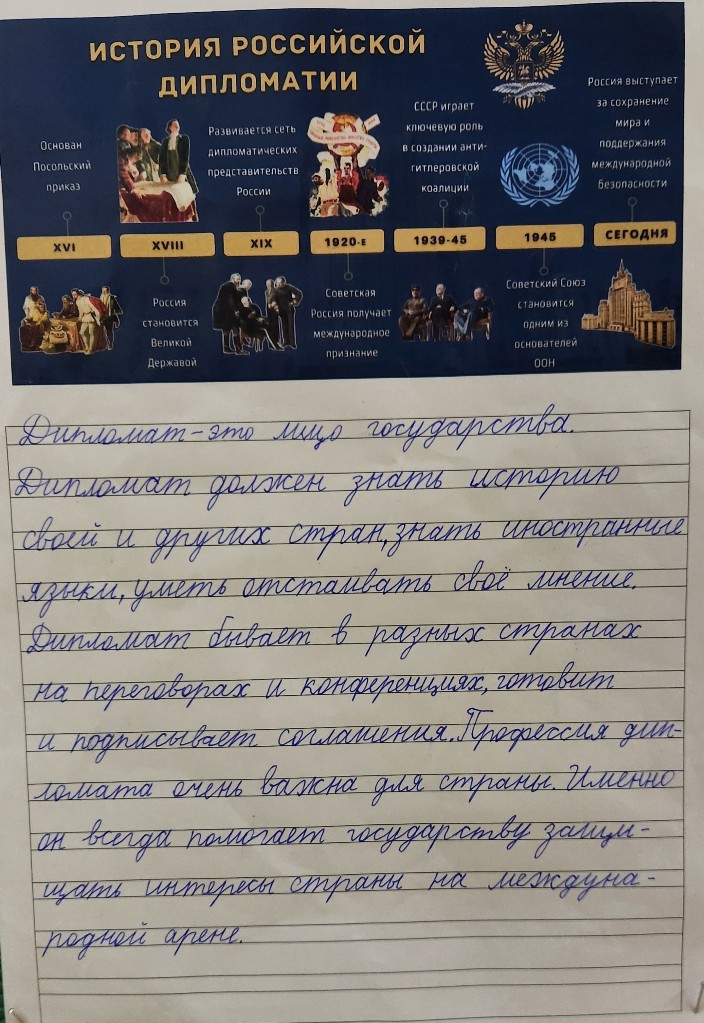 ИСТОРИЯ РОССИЙСКОЙ
ДИПЛОМАТИИ
Основан
Посольский
приказ
XVI
XVIII
Россия
становится
Великой
Державой
Развивается сеть
дипломатических
представительств
России
XIX
1920-Е
Советская
Россия получает
международное
признание
СССР играет
ключевую роль
в создании анти-
гитлеровской
коалиции
1939-45
1945
Советский Союз
становится
одним из
основателей
ООН
Россия выступает
за сохранение
мира и
поддержания
международной
безопасности
СЕГОДНЯ
Дипломат-это лицо государства.
Дипломат должен знать историю
своей и других стран, знать иностранные
языки, уметь отстаивать своё мнение.
Дипломат бывает в разных странах
на переговорах и конференциях, готовит
и подписывает соглашения. Профессия дип-
ломата очень важна для страны. Именно
он всегда помогает государству защи-
щать интересы страны на междуна-
родной арене.